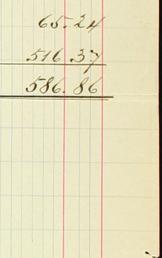 65.24
516.37
586.86